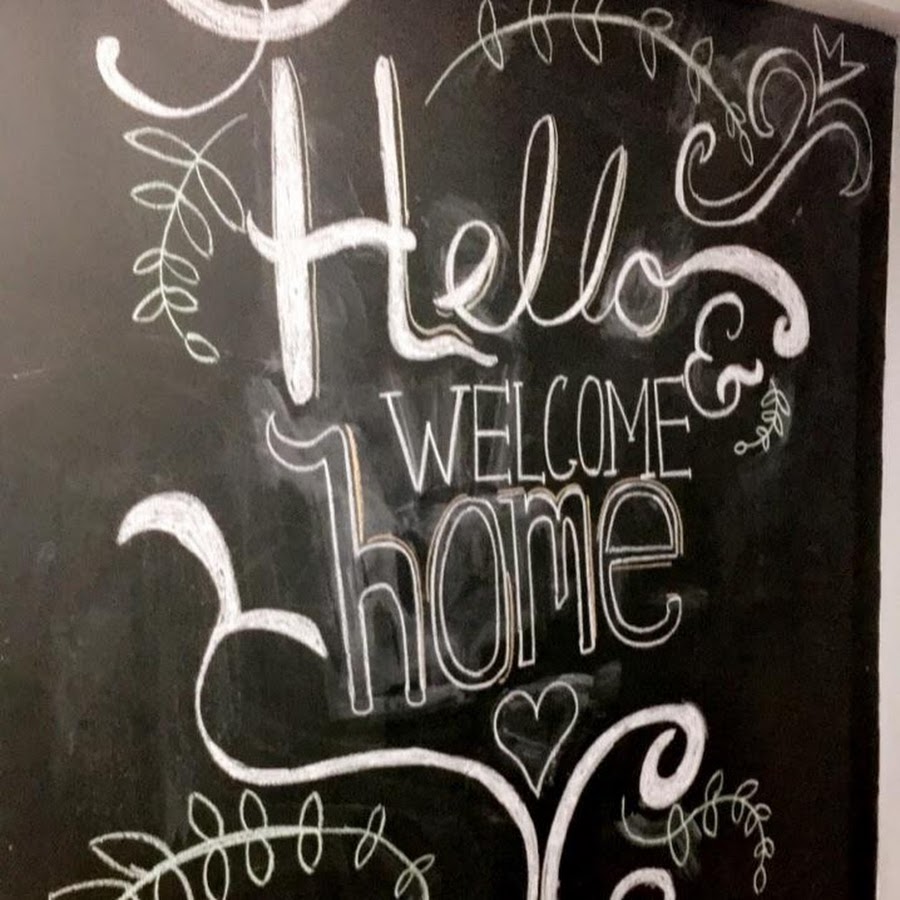 Hello
&
WELCOME
home